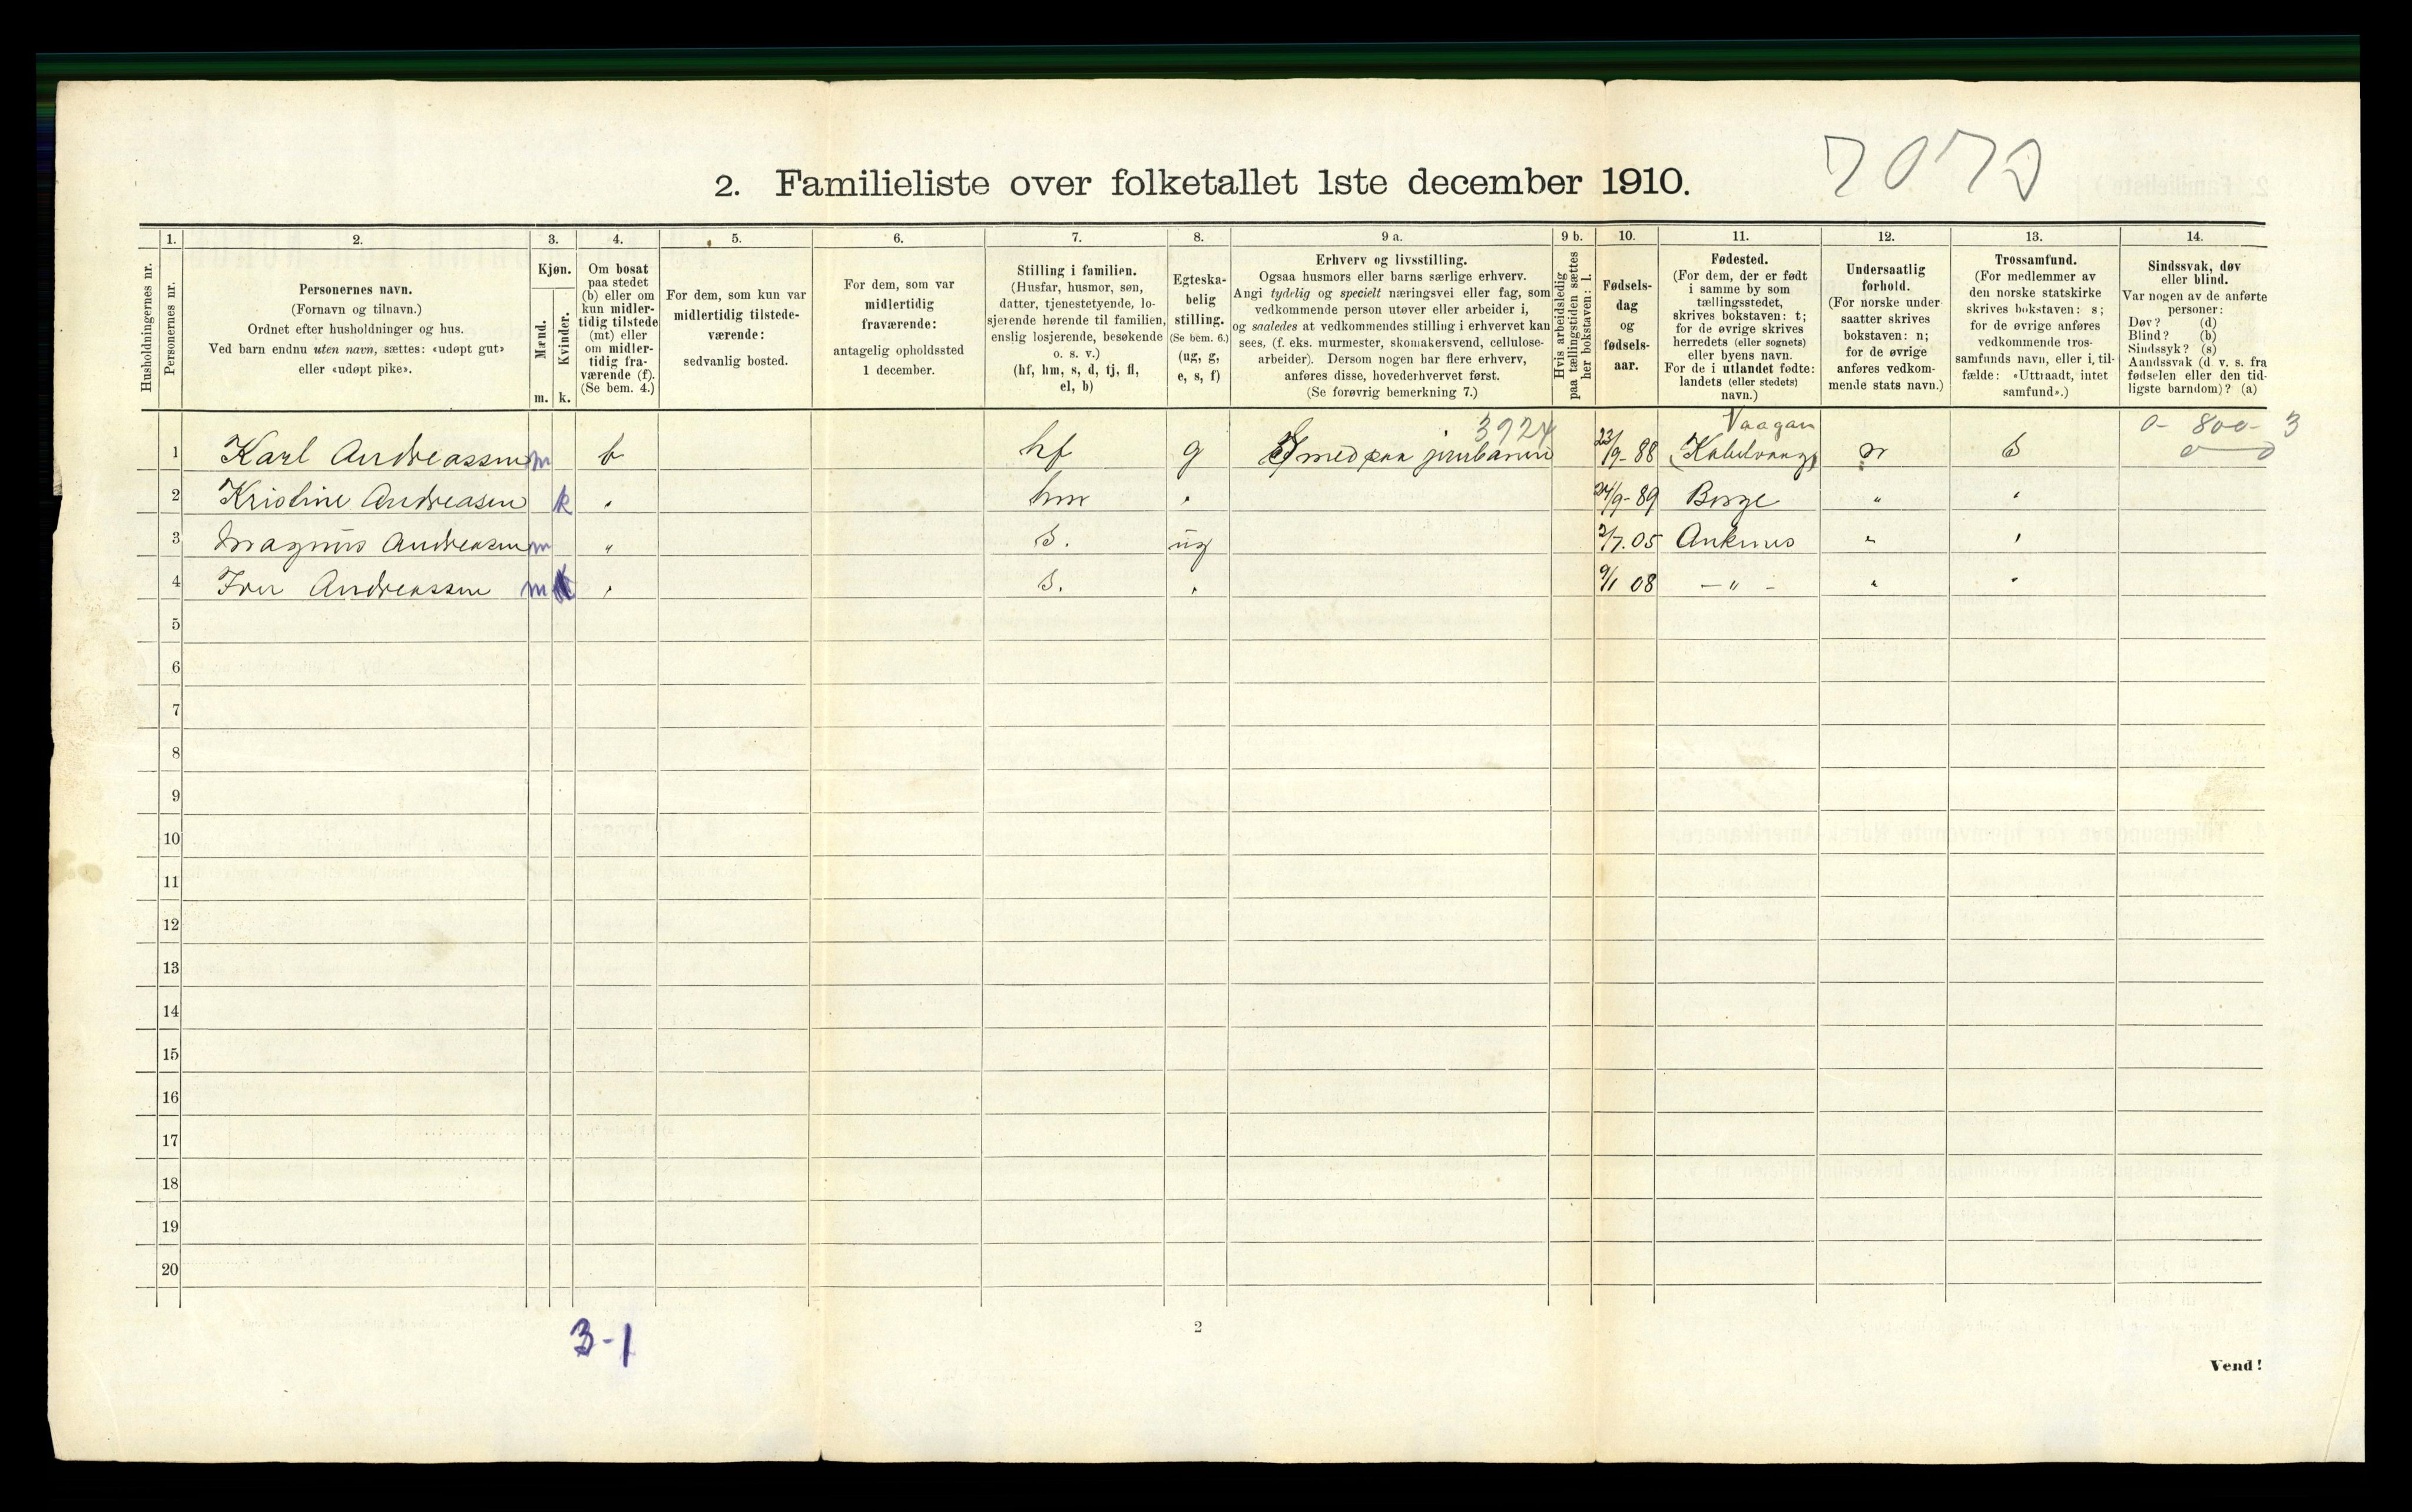 2. Familieliste over folketallet 1ste december 1910.
7073
1. 2. 3. 4. 5. 6. 7. 8. 9 a. 9 b. 10. 11. 12. 13. 14.
Husholdningernes nr.
Personernes nr.
Personernes navn.
(Fornavn og tilnavn.)
Ordnet efter husholdninger og hus.
Ved barn endnu uten navn, sættes: «udøpt gut»
eller «udøpt pike».
Kjøn.
Mænd.
m.
Kvinder.
k.
Om bosat
paa stedet
(b) eller om
kun midler-
tidig tilstede
(mt) eller
om midler-
tidig fra-
værende (f).
(Se bem. 4.)
For dem, som kun var
midlertidig tilstede-
værende:
sedvanlig bosted.
For dem, som var
midlertidig
fraværende:
antagelig opholdssted
1 december.
Stilling i familien.
(Husfar, husmor, søn,
datter, tjenestetyende, lo-
sjerende hørende til familien,
enslig losjerende, besøkende
o. s. v.)
(hf, hm, s, d, tj, fl,
el, b)
Egteska-
belig
stilling.
(Se bem. 6.)
(ug, g,
e, s, f)
Erhverv og livsstilling.
Ogsaa husmors eller barns særlige erhverv.
Angi tydelig og specielt næringsvei eller fag, som
vedkommende person utøver eller arbeider i,
og saaledes at vedkommendes stilling i erhvervet kan
sees, (f. eks. murmester, skomakersvend, cellulose-
arbeider). Dersom nogen har flere erhverv,
anføres disse, hovederhvervet først.
(Se forøvrig bemerkning 7.)
Hvis arbeidsledig
paa tællingstiden sættes
her bokstaven: l.
Fødsels-
dag
og
fødsels-
aar.
Fødested.
(For dem, der er født
i samme by som
tællingsstedet,
skrives bokstaven: t;
for de øvrige skrives
herredets (eller sognets)
eller byens navn.
For de i utlandet fødte:
landets (eller stedets)
navn.)
Undersaatlig
forhold.
(For norske under-
saatter skrives
bokstaven: n;
for de øvrige
anføres vedkom-
mende stats navn.)
Trossamfund.
(For medlemmer av
den norske statskirke
skrives bokstaven: s;
for de øvrige anføres
vedkommende tros-
samfunds navn, eller i til-
fælde: «Uttraadt, intet
samfund».)
Sindssvak, døv
eller blind.
Var nogen av de anførte
personer:
Døv? (d)
Blind? (b)
Sindssyk? (s)
Aandssvak (d. v. s. fra
fødselen eller den tid-
ligste barndom)? (a)
3924 Vaagan 0- 800- 3
1 Karl Andreassen m b hf g Smed paa jernbanen 23/9-88 (Kabelvaag) n s
2 Kristine Andreasen k " hm " 24/9-89 Borge " "
3 Magnus Andreasen m " s. ug 2/7.05 Ankenes " "
4 Iver Andreassen m " s. " 9/1 08 — " — " "
5
6
7
8
9
10
11
12
13
14
15
16
17
18
19
20
3-1
2
Vend!